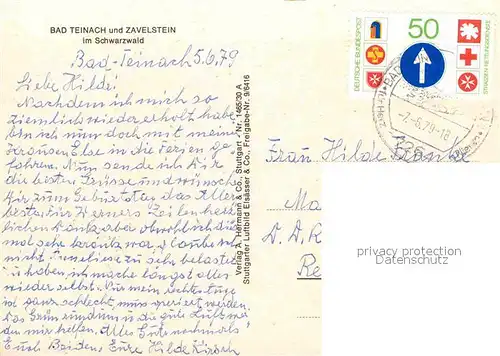 BAD TEINACH und ZAVELSTEIN
im Schwarzwald
Bad-Teinach 5.6.79
Liebe Hilde!
Nachdem ich mich so
ziemlich wieder erholt habe
bin ich nun doch mit mein
Else in die Ferien ge
fahren. Nun sende ich Dir
die besten Grüsse und wünsche
Dir zum Geburtstag das Aller
beste. Für Werners Zeilen herz
lichen Dank, aber obwohl ich die
mal sehr krank war, glaube
nicht
zu haben, ich mache längst alles
wieder selbst. Nur mein rechtes
ist ganz schlecht, nun
und die gute Luft
den mir helfen. Alles Gute nochmals
Euch Beiden, Eure Hilde Kirsch
Verlag A. Hermann & Co., Stuttgart - Nr. 1465/30 A
Stuttgarter Luftbild Elsässer & Co., Freigabe-Nr. 9/6416
DEUTSCHE BUNDESPOST
50
STRASSEN RETTUNGSDIENSTE
-7.-6.79-18
Frau Hilde
Ma
D.D.R
Re
privacy protection
Datenschutz